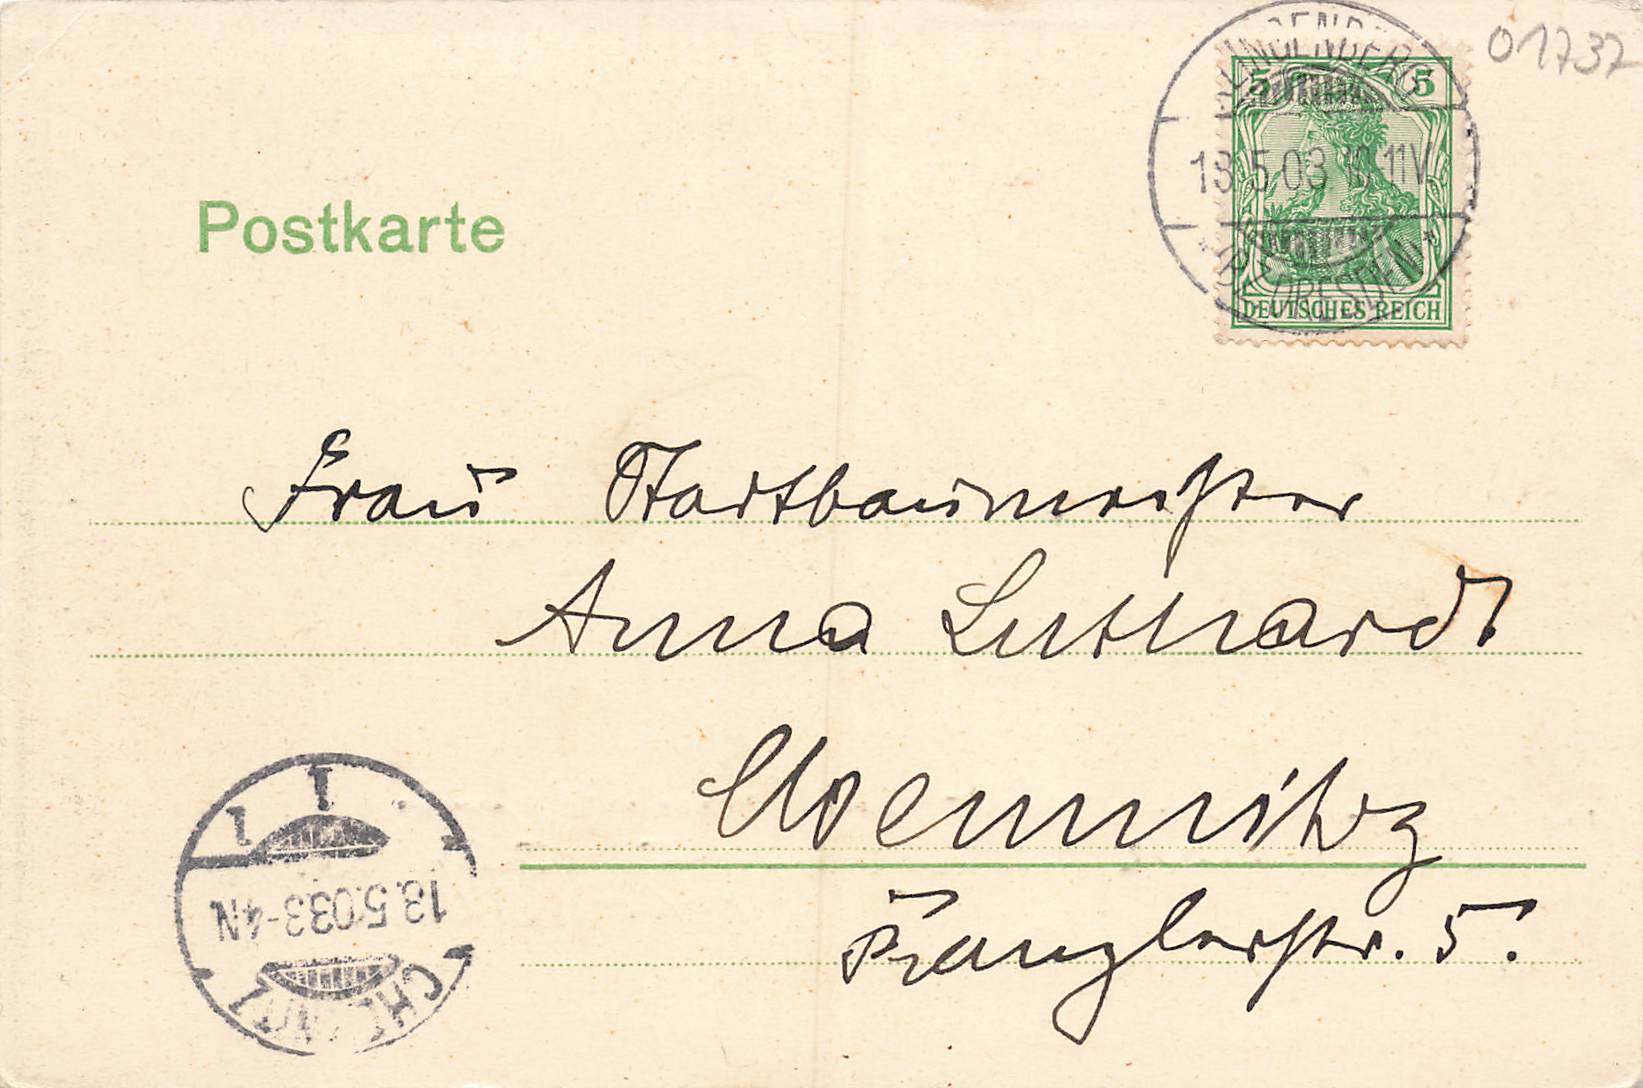 01737
KLINGENBERG
5 5
13.5.03 10-11V.
* (BZ. DRESDEN) *
DEUTSCHES REICH
Postkarte
Frau Stadtbaumeister
Anna Luthardt
Chemnitz
Kanzlerstr. 5.
CHEMNITZ
13.5.03.3-4N
1 1